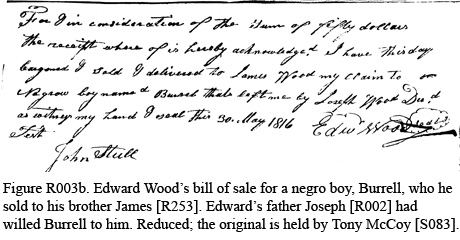 For & in consideration of the Sum of fifty dollars
the receipt where of is hereby acknowledged I have this day
bargoned & sold & delivered to James Wood my claim to
Negrow boy named Burrel thats left me by Joseph Wood Decd
as witness my hand & seal this 30 May 1816
Edwd Wood (seal)
Test
John Stull
Figure R003b. Edward Wood's bill of sale for a negro boy, Burrell, who he
sold to his brother James [R253]. Edward's father Joseph [R002] had
willed Burrell to him. Reduced; the original is held by Tony McCoy [S083].